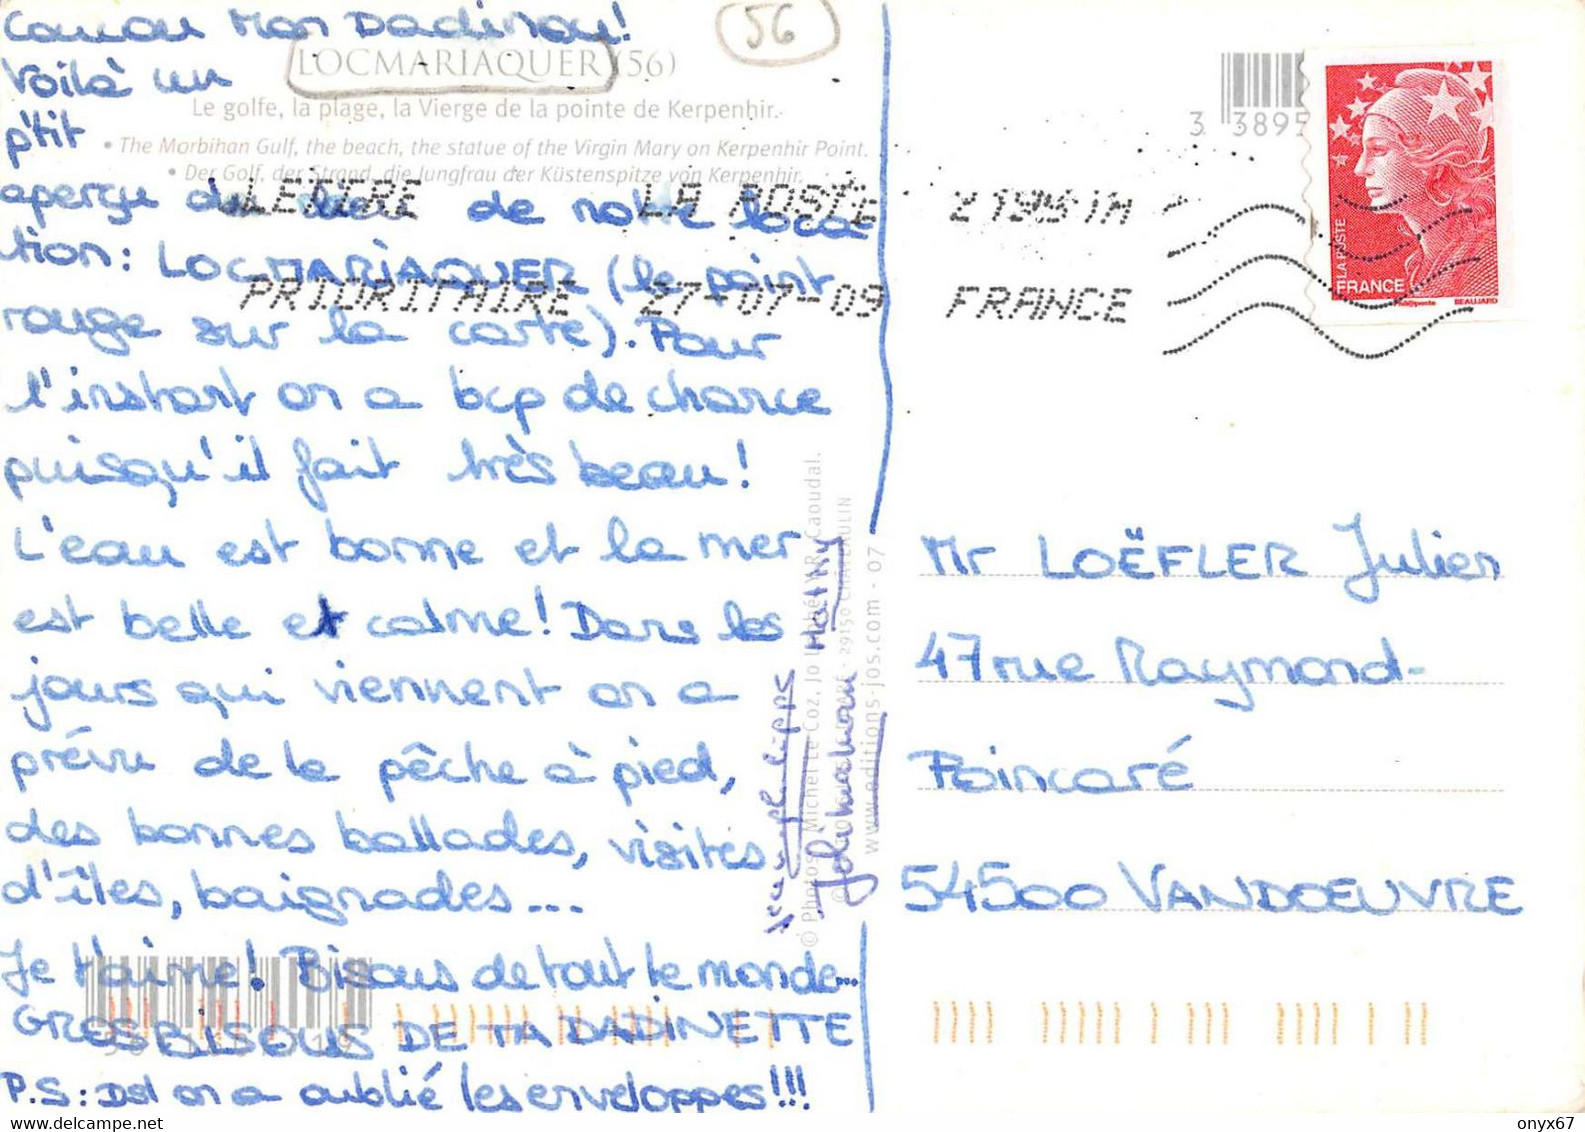 Coucou Mon Dadinou!
Voilà un
p'tit
aperçu du lieu de notre loca-
tion: LOCMARIAQUER (le point
rouge sur la carte). Pour
l'instant on a bcp de chance
puisqu'il fait très beau!
L'eau est bonne et la mer
est belle et calme! Dans les
jours qui viennent on a
prévu de la pêche à pied,
des bonnes ballades, visites
d'îles, baignades...
Je t'aime! Bisous de tout le monde...
GROS BISOUS DE TA DADINETTE
P.S: Dsl on a oublié les enveloppes!!!
56
LOCMARIAQUER (56)
Le golfe, la plage, la Vierge de la pointe de Kerpenhir.
• The Morbihan Gulf, the beach, the statue of the Virgin Mary on Kerpenhir Point.
• Der Golf, der Strand, die Jungfrau der Küstenspitze von Kerpenhir.
LETTRE LA POSTE 21951A
PRIORITAIRE 27-07-09 FRANCE
3 3895
LA POSTE
FRANCE
BEAUJARD
© Photos Michel Le Coz, Jo Caoudal.
29150 CHATEAULIN
www.editions-jos.com - 07
Mr LOËFLER Julien
47 rue Raymond-
Poincaré
54500 VANDOEUVRE
onyx67